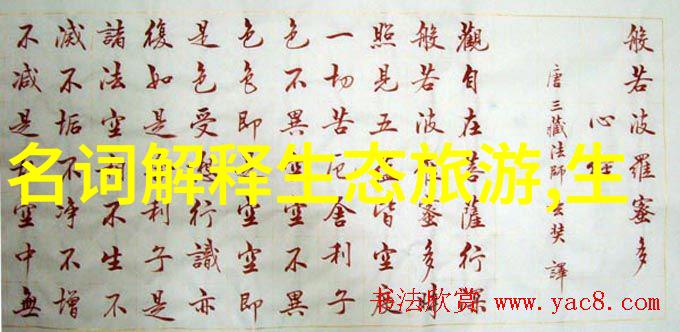 般若波羅蜜多
心经
唐三藏法師玄奘譯
觀自在菩薩行深
般若波蜜多時
照見五皆空度
一切苦厄舍利子
色不異空空不異
色色即是空空即
是色受想行識亦
復如是利子是
諸法空相不生不
滅不垢不净不增
不減是空中無
名词解释生态旅游,生
书法欣赏 www.yac8.com